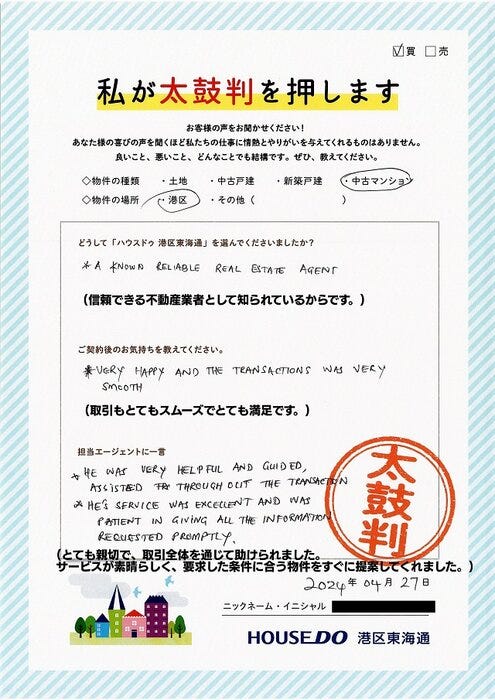 買 売
私が太鼓判を押します
お客様の声をお聞かせください！
あなた様の喜びの声を聞くほど私たちの仕事に情熱とやりがいを与えてくれるものはありません。
良いこと、悪いこと、どんなことでも結構です。ぜひ、教えてください。
◇物件の種類 ・土地 ・中古戸建 ・新築戸建 ・中古マンション
◇物件の場所 ・港区 ・その他（ ）
どうして「ハウスドゥ 港区東海通」を選んでくださいましたか？
* A KNOWN RELIABLE REAL ESTATE AGENT
（信頼できる不動産業者として知られているからです。）
ご契約後のお気持ちを教えてください。
* VERY HAPPY AND THE TRANSACTIONS WAS VERY
SMOOTH
（取引もとてもスムーズでとても満足です。）
担当エージェントに一言
* HE WAS VERY HELPFUL AND GUIDED,
ASSISTED THROUGH OUT THE TRANSACTION
* HE'S SERVICE WAS EXCELLENT AND WAS
PATIENT IN GIVING ALL THE INFORMATION
REQUESTED PROMPTLY.
（とても親切で、取引全体を通じて助けられました。
サービスが素晴らしく、要求した条件に合う物件をすぐに提案してくれました。）
太鼓判
2024年 04月 27日
ニックネーム・イニシャル
HOUSEDO 港区東海通